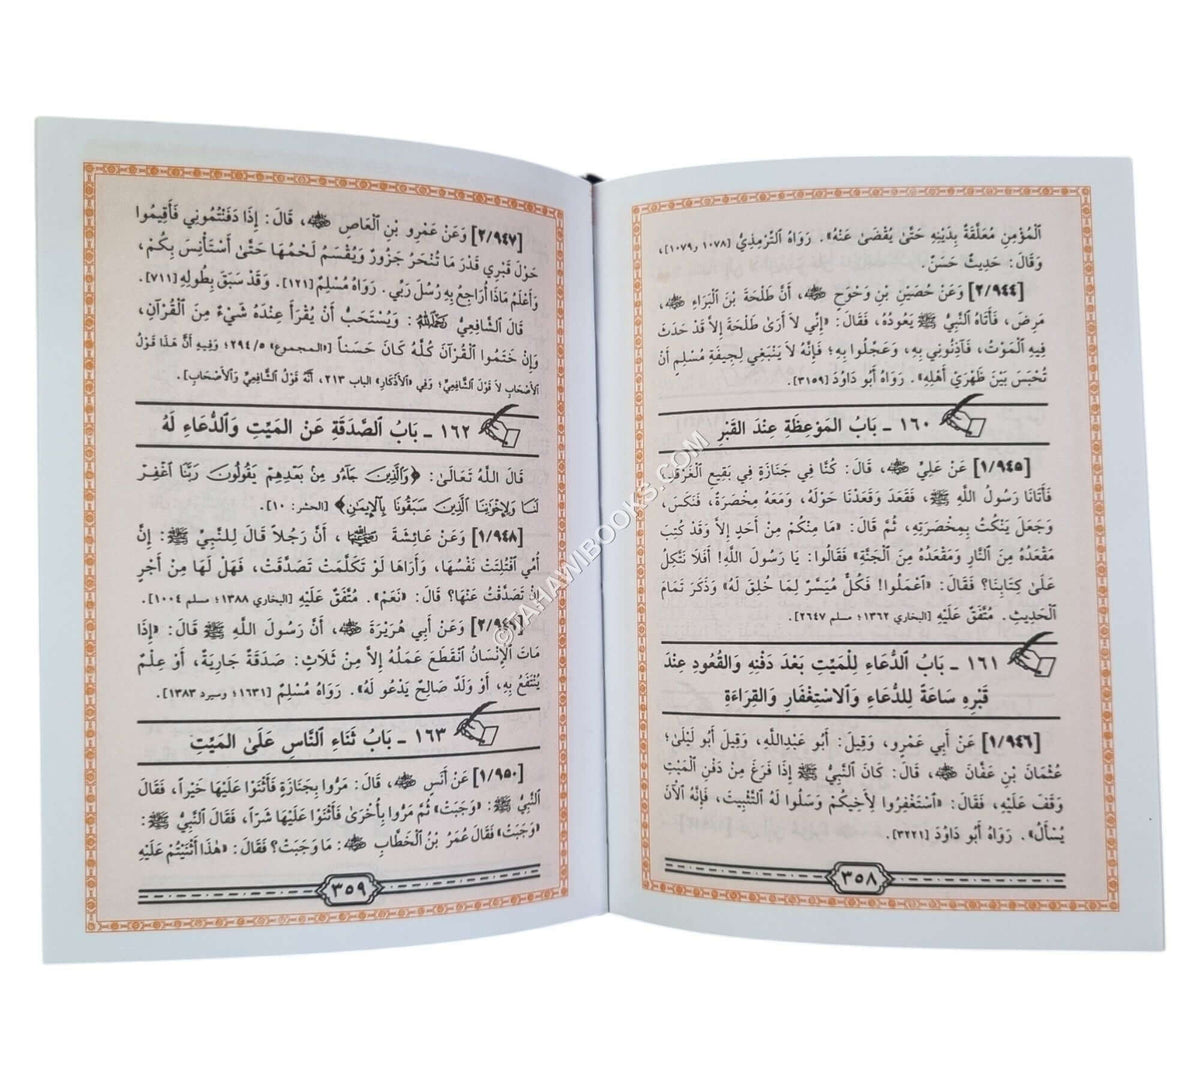 ٱلْمُؤْمِنِ مُعَلَّقَةٌ بِدَيْنِهِ حَتَّىٰ يُقْضَىٰ عَنْهُ». رَوَاهُ ٱلتِّرْمِذِيُّ [١٠٧٨ و١٠٧٩]،
وَقَالَ: حَدِيثٌ حَسَنٌ.
[٢/٩٤٤] وَعَنْ حُصَيْنِ بْنِ وَحْوَحٍ ﵁، أَنَّ طَلْحَةَ بْنَ ٱلْبَرَاءِ ﵁،
مَرِضَ، فَأَتَاهُ النَّبِيُّ ﷺ يَعُودُهُ، فَقَالَ: «إِنِّي لاَ أَرَىٰ طَلْحَةَ إِلاَّ قَدْ حَدَثَ
فِيهِ ٱلْمَوْتُ، فَآذِنُونِي بِهِ، وَعَجِّلُوا بِهِ؛ فَإِنَّهُ لاَ يَنْبَغِي لِجِيفَةِ مُسْلِمٍ أَنْ
تُحْبَسَ بَيْنَ ظَهْرَيْ أَهْلِهِ». رَوَاهُ أَبُو دَاوُدَ [٣١٥٩].
١٦٠ ـ بَابُ المَوْعِظَةِ عِنْدَ القَبْرِ
[١/٩٤٥] عَنْ عَلِيٍّ ﵁، قَالَ: كُنَّا فِي جَنَازَةٍ فِي بَقِيعِ الْغَرْقَدِ
فَأَتَانَا رَسُولُ اللَّهِ ﷺ، فَقَعَدَ وَقَعَدْنَا حَوْلَهُ، وَمَعَهُ مِخْصَرَةٌ، فَنَكَسَ،
وَجَعَلَ يَنْكُتُ بِمِخْصَرَتِهِ، ثُمَّ قَالَ: «مَا مِنْكُمْ مِنْ أَحَدٍ إِلاَّ وَقَدْ كُتِبَ
مَقْعَدُهُ مِنَ ٱلنَّارِ وَمَقْعَدُهُ مِنَ ٱلْجَنَّةِ» فَقَالُوا: يَا رَسُولَ اللَّهِ! أَفَلاَ نَتَّكِلُ
عَلَىٰ كِتَابِنَا؟ فَقَالَ: «ٱعْمَلُوا! فَكُلٌّ مُيَسَّرٌ لِمَا خُلِقَ لَهُ» وَذَكَرَ تَمَامَ
ٱلْحَدِيثِ. مُتَّفَقٌ عَلَيْهِ [البخاري ١٣٦٢؛ مسلم ٢٦٤٧].
١٦١ ـ بَابُ ٱلدُّعَاءِ لِلْمَيِّتِ بَعْدَ دَفْنِهِ وَالقُعُودِ عِنْدَ
قَبْرِهِ سَاعَةً لِلدُّعَاءِ وَٱلاسْتِغْفَارِ وَالقِرَاءَةِ
[١/٩٤٦] عَنْ أَبِي عَمْرٍو، وَقِيلَ: أَبُو عَبْدِاللَّهِ، وَقِيلَ أَبُو لَيْلَىٰ؛
عُثْمَانَ بْنِ عَفَّانَ ﵁، قَالَ: كَانَ ٱلنَّبِيُّ ﷺ إِذَا فَرَغَ مِنْ دَفْنِ ٱلْمَيِّتِ
وَقَفَ عَلَيْهِ، فَقَالَ: «ٱسْتَغْفِرُوا لِأَخِيكُمْ وَسَلُوا لَهُ ٱلتَّثْبِيتَ، فَإِنَّهُ ٱلْآنَ
يُسْأَلُ». رَوَاهُ أَبُو دَاوُدَ [٣٢٢١].
٣٥٨
[٢/٩٤٧] وَعَنْ عَمْرِو بْنِ ٱلْعَاصِ ﵁، قَالَ: إِذَا دَفَنْتُمُونِي فَأَقِيمُوا
حَوْلَ قَبْرِي قَدْرَ مَا تُنْحَرُ جَزُورٌ وَيُقْسَمُ لَحْمُهَا حَتَّىٰ أَسْتَأْنِسَ بِكُمْ،
وَأَعْلَمَ مَاذَا أُرَاجِعُ بِهِ رُسُلَ رَبِّي. رَوَاهُ مُسْلِمٌ [١٢١]. وَقَدْ سَبَقَ بِطُولِهِ [٧١١].
قَالَ ٱلشَّافِعِيُّ ﵀: وَيُسْتَحَبُّ أَنْ يُقْرَأَ عِنْدَهُ شَيْءٌ مِنَ ٱلْقُرْآنِ،
وَإِنْ خَتَمُوا ٱلْقُرْآنَ كُلَّهُ كَانَ حَسَناً [«المجموع» ٢٩٤/٥؛ وَفِيهِ أَنَّ هَذَا قَوْلُ
الأَصْحَابِ لاَ قَوْلُ الشَّافِعِيِّ؛ وَفِي «الأَذْكَارِ» الباب ٢١٣، أَنَّهُ قَوْلُ الشَّافِعِيِّ وَالأَصْحَابِ].
١٦٢ ـ بَابُ ٱلصَّدَقَةِ عَنِ المَيِّتِ وَٱلدُّعَاءِ لَهُ
قَالَ اللَّهُ تَعَالَىٰ: ﴿وَٱلَّذِينَ جَآءُو مِنۢ بَعْدِهِمْ يَقُولُونَ رَبَّنَا ٱغْفِرْ
لَنَا وَلِإِخْوَٰنِنَا ٱلَّذِينَ سَبَقُونَا بِٱلْإِيمَٰنِ﴾ [الحشر: ١٠].
[١/٩٤٨] وَعَنْ عَائِشَةَ ﵂، أَنَّ رَجُلاً قَالَ لِلنَّبِيِّ ﷺ: إِنَّ
أُمِّي ٱفْتُلِتَتْ نَفْسُهَا، وَأُرَاهَا لَوْ تَكَلَّمَتْ تَصَدَّقَتْ، فَهَلْ لَهَا مِنْ أَجْرٍ
إِنْ تَصَدَّقْتُ عَنْهَا؟ قَالَ: «نَعَمْ». مُتَّفَقٌ عَلَيْهِ [البخاري ١٣٨٨؛ مسلم ١٠٠٤].
[٢/٩٤٩] وَعَنْ أَبِي هُرَيْرَةَ ﵁، أَنَّ رَسُولَ اللَّهِ ﷺ قَالَ: «إِذَا
مَاتَ ٱلْإِنْسَانُ ٱنْقَطَعَ عَمَلُهُ إِلاَّ مِنْ ثَلاَثٍ: صَدَقَةٍ جَارِيَةٍ، أَوْ عِلْمٍ
يُنْتَفَعُ بِهِ، أَوْ وَلَدٍ صَالِحٍ يَدْعُو لَهُ». رَوَاهُ مُسْلِمٌ [١٦٣١؛ وسيرد ١٣٨٣].
١٦٣ ـ بَابُ ثَنَاءِ ٱلنَّاسِ عَلَىٰ المَيِّتِ
[١/٩٥٠] عَنْ أَنَسٍ ﵁، قَالَ: مَرُّوا بِجَنَازَةٍ فَأَثْنَوْا عَلَيْهَا خَيْراً، فَقَالَ
ٱلنَّبِيُّ ﷺ: «وَجَبَتْ» ثُمَّ مَرُّوا بِأُخْرَىٰ فَأَثْنَوْا عَلَيْهَا شَرّاً، فَقَالَ ٱلنَّبِيُّ ﷺ:
«وَجَبَتْ» فَقَالَ عُمَرُ بْنُ ٱلْخَطَّابِ ﵁: مَا وَجَبَتْ؟ فَقَالَ: «هٰذَا أَثْنَيْتُمْ عَلَيْهِ
٣٥٩
©TAHAWIBOOKS.COM